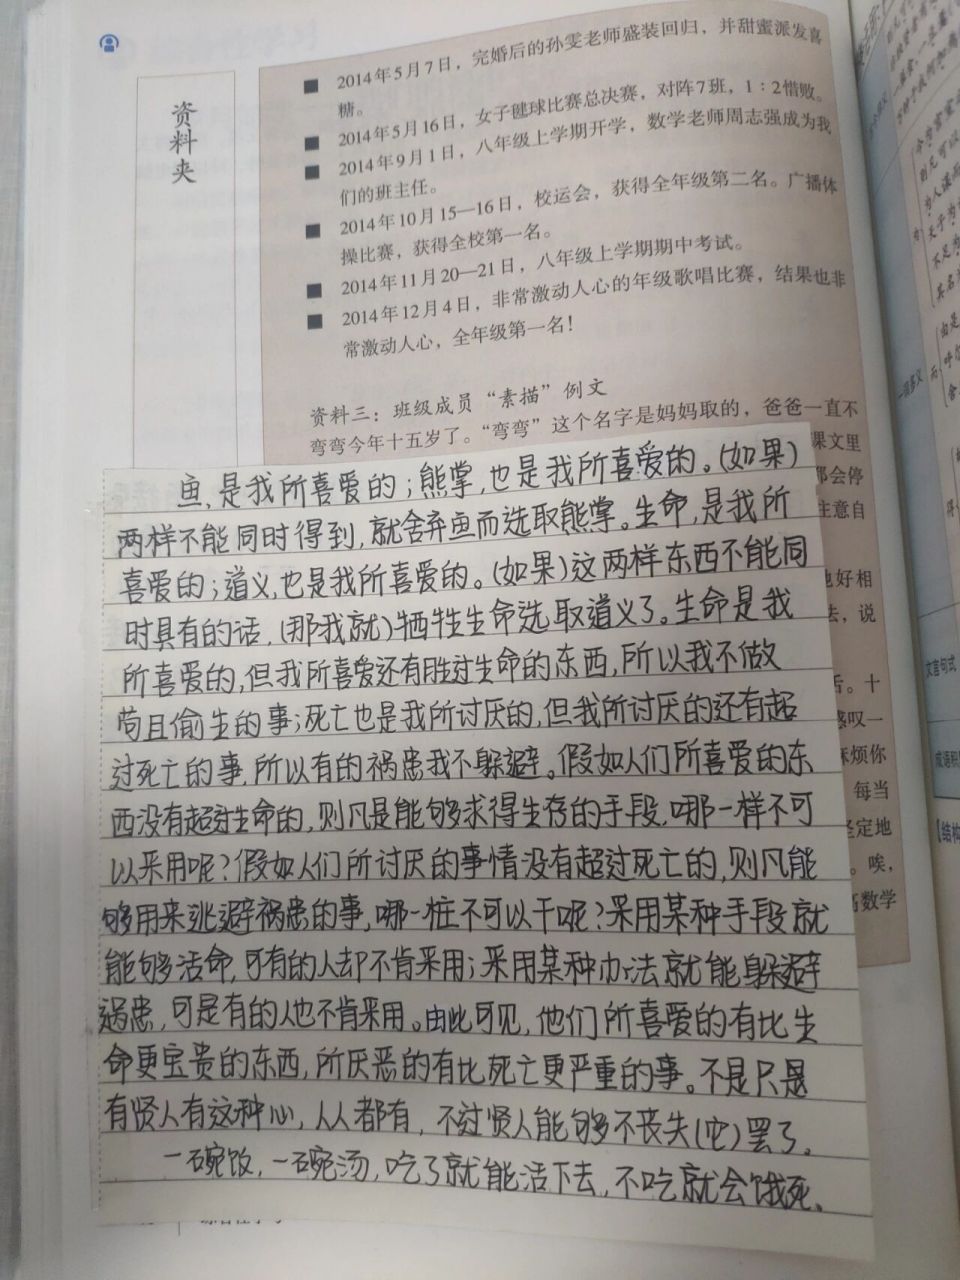 资料夹
■ 2014年5月7日，完婚后的孙雯老师盛装回归，并甜蜜派发喜
糖。
■ 2014年5月16日，女子毽球比赛总决赛，对阵7班，1：2惜败。
■ 2014年9月1日，八年级上学期开学，数学老师周志强成为我
们的班主任。
■ 2014年10月15—16日，校运会，获得全年级第二名。广播体
操比赛，获得全校第一名。
■ 2014年11月20—21日，八年级上学期期中考试。
■ 2014年12月4日，非常激动人心的年级歌唱比赛，结果也非
常激动人心，全年级第一名！
资料三：班级成员“素描”例文
弯弯今年十五岁了。“弯弯”这个名字是妈妈取的，爸爸一直不
课文里
都会停
注意自
好相
去，说
舌。十
感叹一
麻烦你
每当
坚定地
。唉，
数学
鱼，是我所喜爱的；熊掌，也是我所喜爱的。（如果）
两样不能同时得到，就舍弃鱼而选取熊掌。生命，是我所
喜爱的；道义，也是我所喜爱的。（如果）这两样东西不能同
时具有的话，（那我就）牺牲生命选取道义了。生命是我
所喜爱的，但我所喜爱还有胜过生命的东西，所以我不做
苟且偷生的事；死亡也是我所讨厌的，但我所讨厌的还有超
过死亡的事，所以有的祸患我不躲避。假如人们所喜爱的东
西没有超过生命的，则凡是能够求得生存的手段，哪一样不可
以采用呢？假如人们所讨厌的事情没有超过死亡的，则凡能
够用来逃避祸患的事，哪一桩不可以干呢？采用某种手段就
能够活命，可有的人却不肯采用；采用某种办法就能躲避
祸患，可是有的人也不肯采用。由此可见，他们所喜爱的有比生
命更宝贵的东西，所厌恶的有比死亡更严重的事。不是只是
有贤人有这种心，人人都有，不过贤人能够不丧失（它）罢了。
一碗饭，一碗汤，吃了就能活下去，不吃就会饿死。
一词多义
文言句式